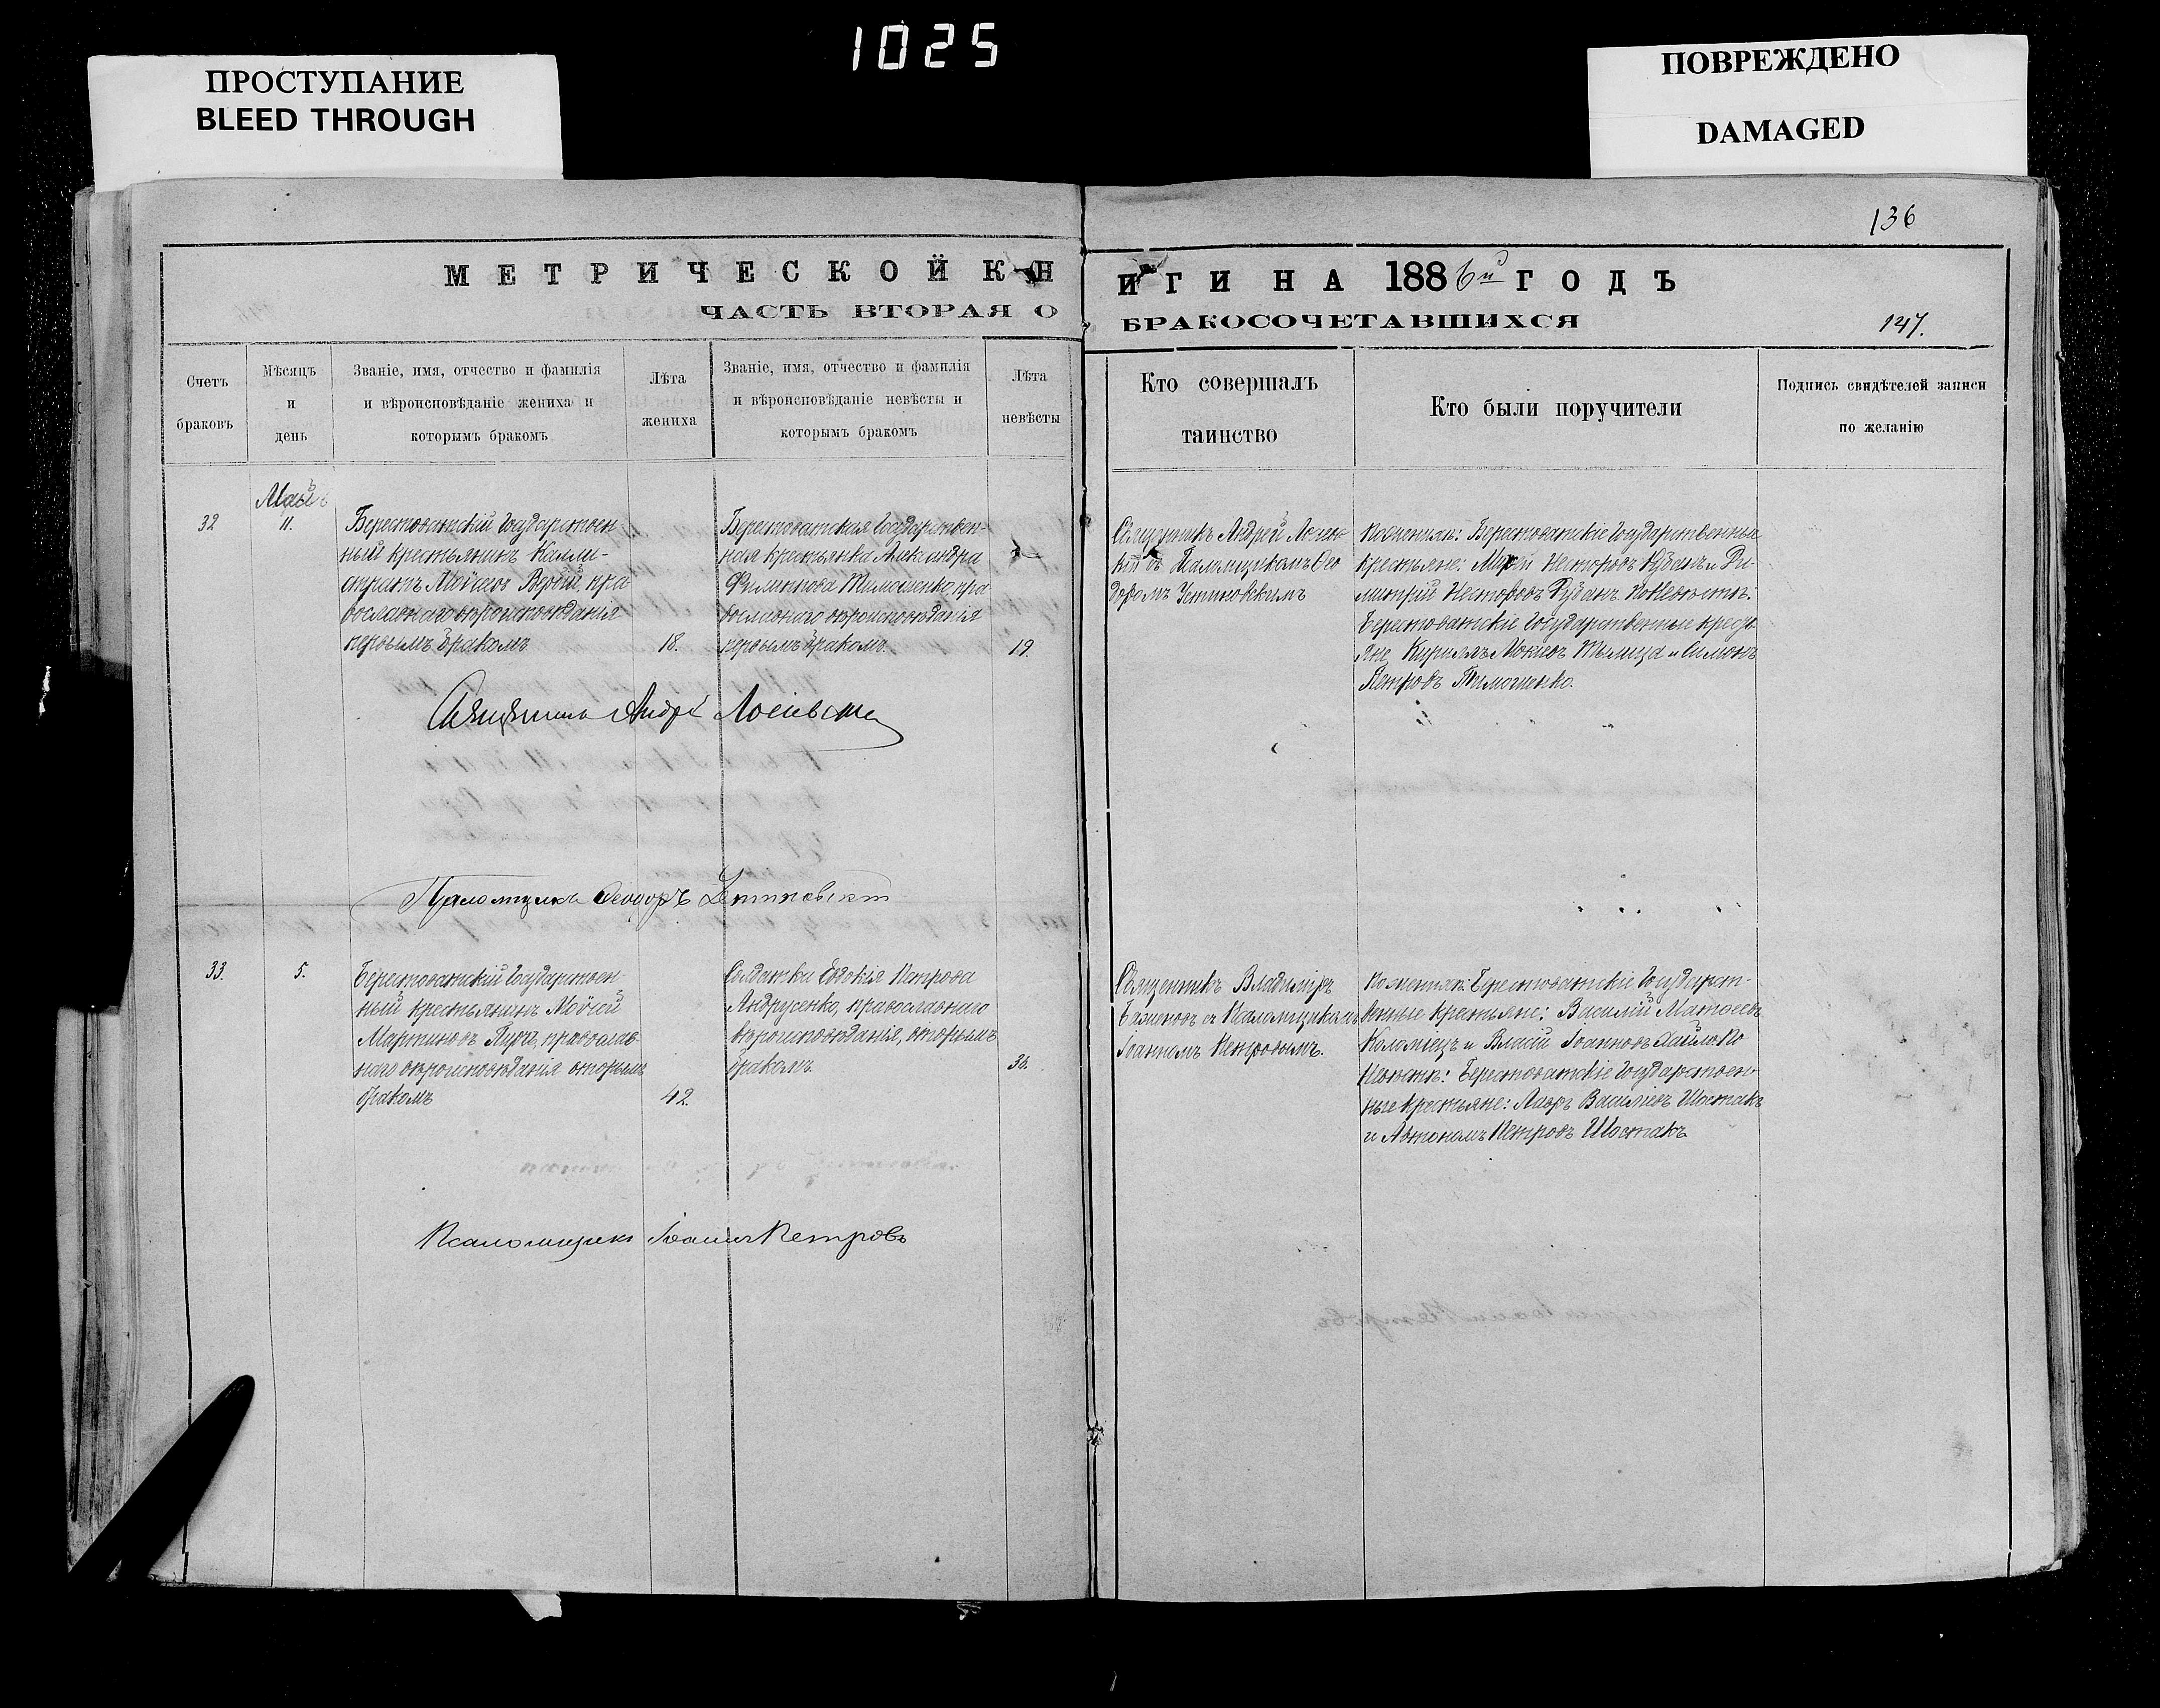 1025
ПРОСТУПАНИЕ
BLEED THROUGH
ПОВРЕЖДЕНО
DAMAGED
136
МЕТРИЧЕСКОЙ КНИГИ НА 1886й ГОДЪ
ЧАСТЬ ВТОРАЯ О БРАКОСОЧЕТАВШИХСЯ
147.
Счетъ
браковъ
Мѣсяцъ
и
день
Званіе, имя, отчество и фамилія
и вѣроисповѣданіе жениха и
которымъ бракомъ
Лѣта
жениха
Званіе, имя, отчество и фамилія
и вѣроисповѣданіе невѣсты и
которымъ бракомъ
Лѣта
невѣсты
Кто совершалъ
таинство
Кто были поручители
Подпись свидѣтелей записи
по желанію
32
Май
11.
Берестоватскій Государствен-
ный крестьянинъ Калли-
стратъ Моѵсеевъ, пра-
вославнаго вѣроисповѣданія
первымъ бракомъ
18.
Берестоватская Государствен-
ная крестьянка Александра
Филиппова Тимошенко, пра-
вославнаго вѣроисповѣданія
первымъ бракомъ.
19.
Священникъ Андрей
съ Псаломщикомъ Ѳео-
доромъ Устиновскимъ
По женихѣ: Берестоватскіе Государственные
крестьяне: Несторовъ и Ди-
митрій Несторовъ По Невѣстѣ:
Берестоватскіе Государственные кресть-
яне Кириллъ и Симонъ
Петровъ Тимошенко.
Священникъ Андрей
Псаломщикъ Ѳеодоръ Устиновскій
33.
5.
Берестоватскій Государствен-
ный крестьянинъ Моѵсей
Мартиновъ, православ-
наго вѣроисповѣданія вторымъ
бракомъ
42.
Солдатка Евдокія Петрова
Андрусенко, православнаго
вѣроисповѣданія, вторымъ
бракомъ.
Священникъ Владиміръ
съ Псаломщикомъ
Іоанномъ Петровымъ.
По женихѣ: Берестоватскіе Государст-
венные крестьяне: Василій Матѳеевъ
Коломіецъ и Власій Іоанновъ По
Невѣстѣ: Берестоватскіе Государствен-
ные крестьяне: Лавръ Васильевъ Шостакъ
и Автономъ Петровъ Шостакъ
Псаломщикъ Іоаннъ Петровъ